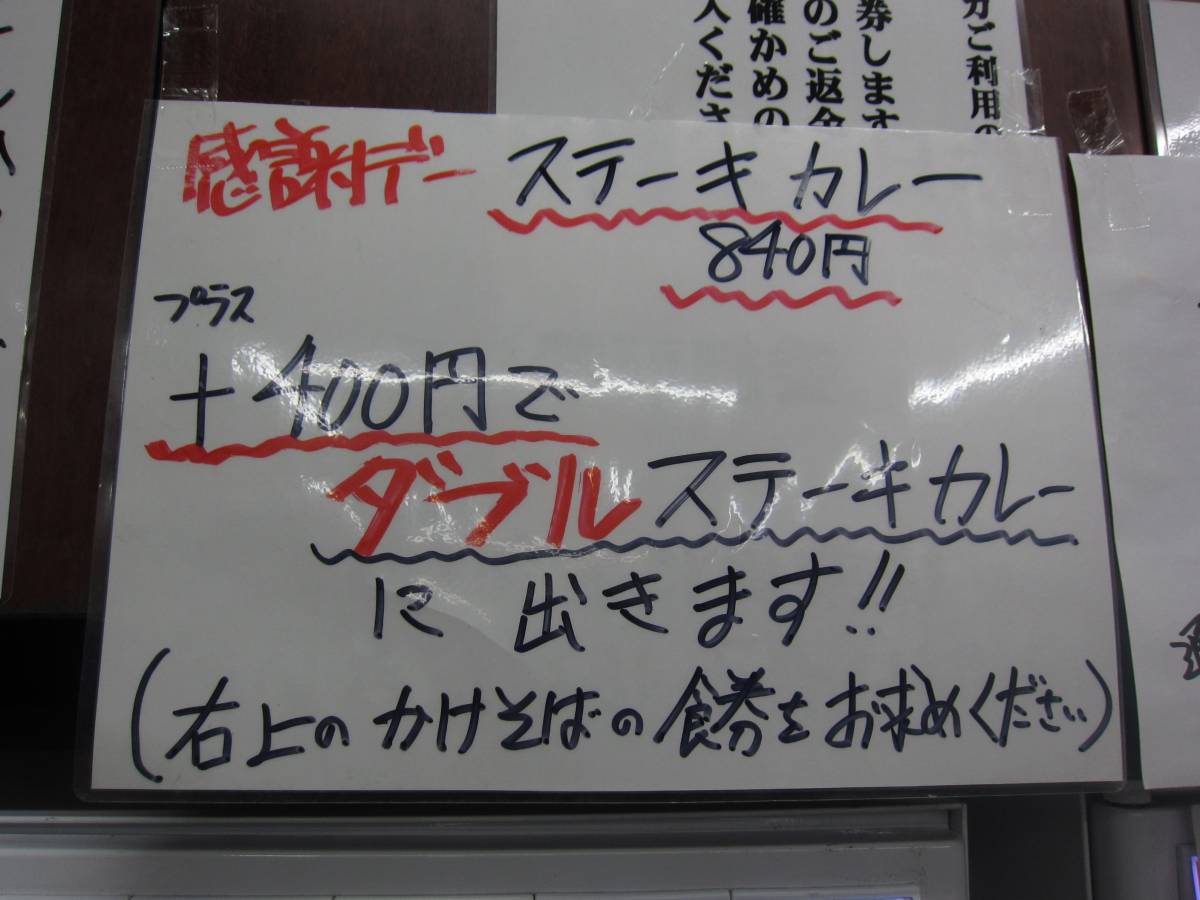 分ご利用の
券します
のご返金
確かめの
入くださ
感謝デー ステーキカレー
840円
プラス
+400円で
ダブルステーキカレー
に出きます!!
(右上のかけそばの食券をお求めください)